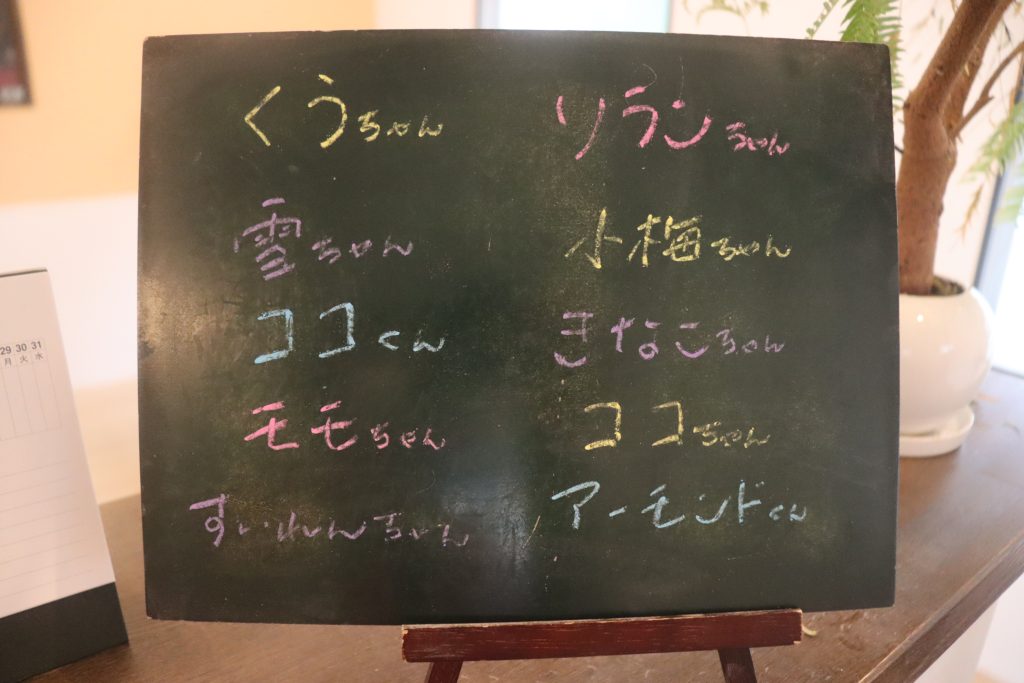 くうちゃん リランちゃん
雪ちゃん 小梅ちゃん
ココくん きなこちゃん
モモちゃん ココちゃん
すいれんちゃん アーモンドくん
29 30 31
月 火 水